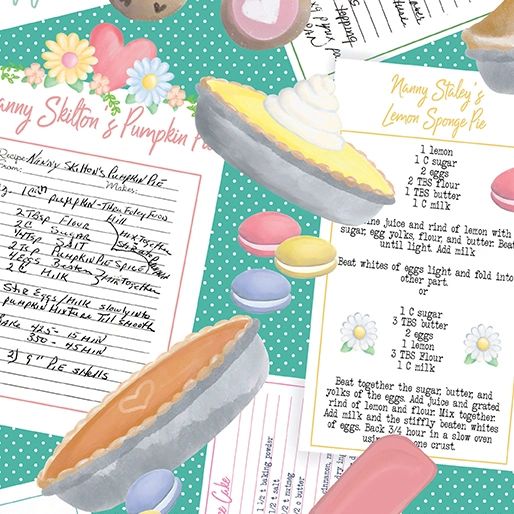 Nanny Skilton's Pumpkin
Recipe: Nanny Skilton's Pumpkin Pie
From:
Makes:
pumpkin - Then Foley Food
2 Tbsp Flour
2 C Sugar
Salt
Mix Together
2 Tbsp Pumpkin Pie Spice
4 Eggs Beaten
Mix Together
2 C Milk
Stir Eggs/Milk slowly into
pumpkin Mixture Till Smooth
425 - 15 Min
350 - 45 Min
2) 9" Pie shells
Nanny Staley's
Lemon Sponge Pie
1 lemon
1 C sugar
2 eggs
2 TBS flour
1 TBS butter
1 C milk
juice and rind of lemon with
sugar, egg yolks, flour, and butter. Beat
until light. Add milk
Beat whites of eggs light and fold into
other part.
or
1 C sugar
3 TBS butter
2 eggs
1 lemon
3 TBS Flour
1 C milk
Beat together the sugar, butter, and
yolks of the eggs. Add juice and grated
rind of lemon and flour. Mix together.
Add milk and the stiffly beaten whites
of eggs. Back 3/4 hour in a slow oven
one crust.
Cake
1/2 t baking powder
1/2 t salt
1/2 t nutmeg